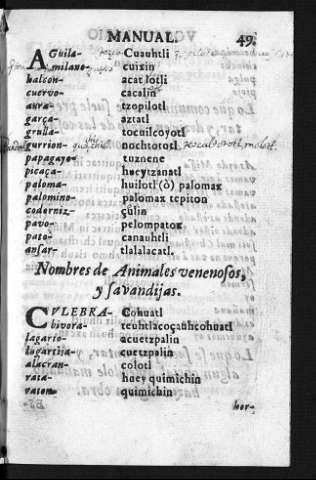 MANUAL. 49.
AGuila- Cuauhtli
milano- cuixin
halcon- acatlotli
cuervo- cacalin
aura- tzopilotl
garça- aztatl
grulla- tocuilcoyotl
gurrion- nochtototl
papagayo- tuznene
picaça- hueytzanatl
paloma- huilotl (ò) palomax
palomino- palomax tepiton
codorniz- çùlin
pavo- pelompatox
pato- canauhtli
ansar- tlalalacatl.
Nombres de Animales venenosos,
y savandijas.
CVLEBRA- Cohuatl
bivora- teuhtlacoçauhcohuatl
lagarto- acuetzpalin
lagartija- cuetzpalin
alacran- colotl
rata- huey quimichin
raton- quimichin
hor-